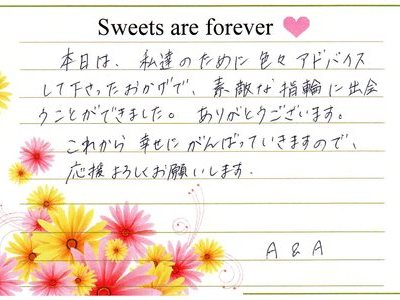 Sweets are forever
本日は、私達のために色々アドバイス
して下さったおかげで、素敵な指輪に出会
うことができました。ありがとうございます。
これから幸せにがんばっていきますので、
応援よろしくお願いします.
A & A